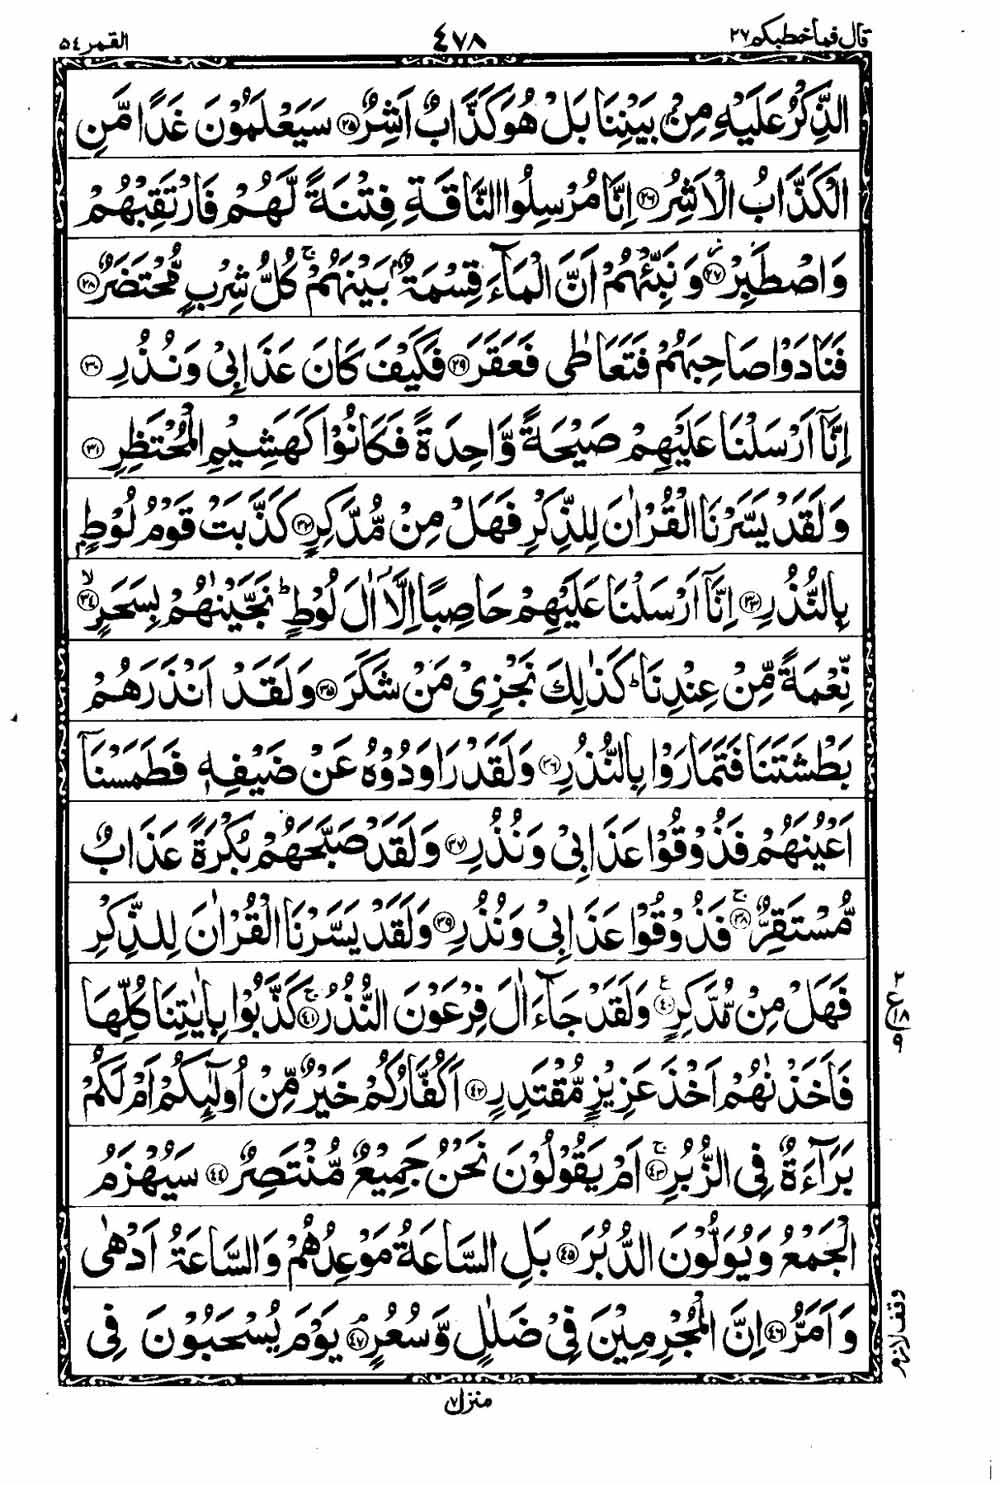 قال فما خطبكم ٢٧
٤٧٨
القمر ٥٤
الذِّكْرُ عَلَيْهِ مِنْۢ بَيْنِنَا بَلْ هُوَ كَذَّابٌ اَشِرٌ ﴿٢٥﴾ سَيَعْلَمُوْنَ غَدًا مَّنِ
الْكَذَّابُ الْاَشِرُ ﴿٢٦﴾ اِنَّا مُرْسِلُوا النَّاقَةِ فِتْنَةً لَّهُمْ فَارْتَقِبْهُمْ
وَاصْطَبِرْ ﴿٢٧﴾ وَنَبِّئْهُمْ اَنَّ الْمَآءَ قِسْمَةٌۢ بَيْنَهُمْ ۚ كُلُّ شِرْبٍ مُّحْتَضَرٌ ﴿٢٨﴾
فَنَادَوْا صَاحِبَهُمْ فَتَعَاطٰى فَعَقَرَ ﴿٢٩﴾ فَكَيْفَ كَانَ عَذَابِىْ وَنُذُرِ ﴿٣٠﴾
اِنَّاۤ اَرْسَلْنَا عَلَيْهِمْ صَيْحَةً وَّاحِدَةً فَكَانُوْا كَهَشِيْمِ الْمُحْتَظِرِ ﴿٣١﴾
وَلَقَدْ يَسَّرْنَا الْقُرْاٰنَ لِلذِّكْرِ فَهَلْ مِنْ مُّدَّكِرٍ ﴿٣٢﴾ كَذَّبَتْ قَوْمُ لُوْطٍۢ
بِالنُّذُرِ ﴿٣٣﴾ اِنَّاۤ اَرْسَلْنَا عَلَيْهِمْ حَاصِبًا اِلَّاۤ اٰلَ لُوْطٍ ؕ نَجَّيْنٰهُمْ بِسَحَرٍ ۙ﴿٣٤﴾
نِّعْمَةً مِّنْ عِنْدِنَا ؕ كَذٰلِكَ نَجْزِىْ مَنْ شَكَرَ ﴿٣٥﴾ وَلَقَدْ اَنْذَرَهُمْ
بَطْشَتَنَا فَتَمَارَوْا بِالنُّذُرِ ﴿٣٦﴾ وَلَقَدْ رَاوَدُوْهُ عَنْ ضَيْفِهٖ فَطَمَسْنَاۤ
اَعْيُنَهُمْ فَذُوْقُوْا عَذَابِىْ وَنُذُرِ ﴿٣٧﴾ وَلَقَدْ صَبَّحَهُمْ بُكْرَةً عَذَابٌ
مُّسْتَقِرٌّ ۚ﴿٣٨﴾ فَذُوْقُوْا عَذَابِىْ وَنُذُرِ ﴿٣٩﴾ وَلَقَدْ يَسَّرْنَا الْقُرْاٰنَ لِلذِّكْرِ
فَهَلْ مِنْ مُّدَّكِرٍ ﴿٤٠﴾ ع وَلَقَدْ جَآءَ اٰلَ فِرْعَوْنَ النُّذُرُ ۚ﴿٤١﴾ كَذَّبُوْا بِاٰيٰتِنَا كُلِّهَا
٢
ع
١٨
٩
فَاَخَذْنٰهُمْ اَخْذَ عَزِيْزٍ مُّقْتَدِرٍ ﴿٤٢﴾ اَكُفَّارُكُمْ خَيْرٌ مِّنْ اُولٰٓئِكُمْ اَمْ لَكُمْ
بَرَآءَةٌ فِى الزُّبُرِ ۚ﴿٤٣﴾ اَمْ يَقُوْلُوْنَ نَحْنُ جَمِيْعٌ مُّنْتَصِرٌ ﴿٤٤﴾ سَيُهْزَمُ
الْجَمْعُ وَيُوَلُّوْنَ الدُّبُرَ ﴿٤٥﴾ بَلِ السَّاعَةُ مَوْعِدُهُمْ وَالسَّاعَةُ اَدْهٰى
وَاَمَرُّ ﴿٤٦﴾ اِنَّ الْمُجْرِمِيْنَ فِىْ ضَلٰلٍ وَّسُعُرٍ ۘ﴿٤٧﴾ يَوْمَ يُسْحَبُوْنَ فِى
وقف لازم
منزل ٧